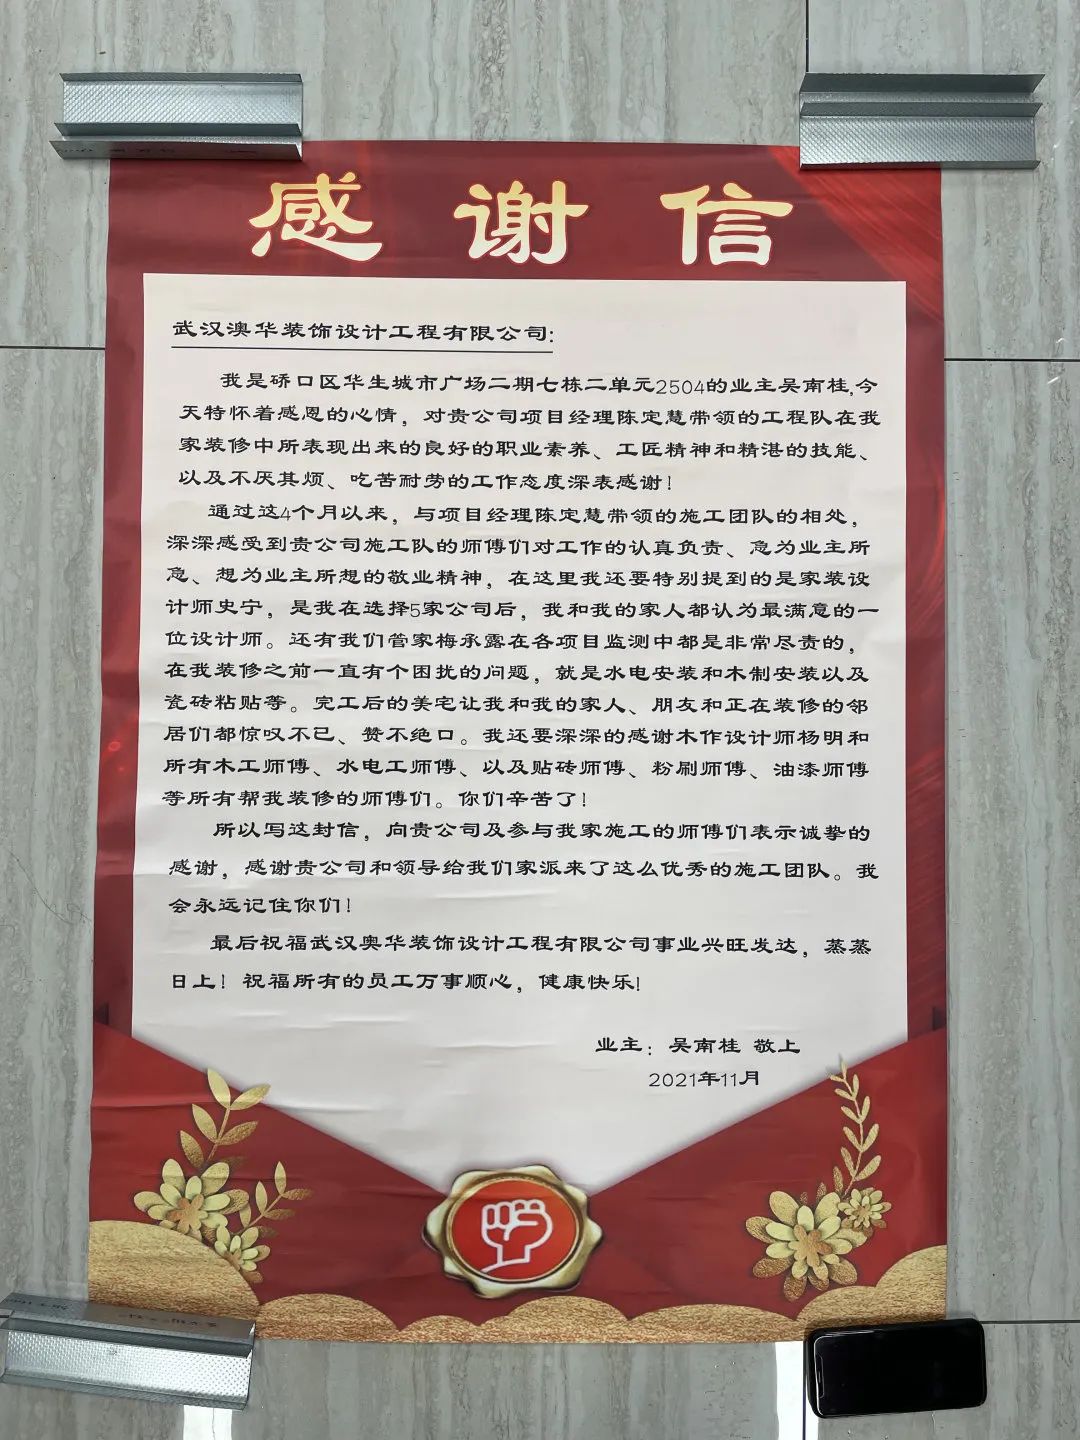 感谢信
武汉澳华装饰设计工程有限公司:
我是硚口区华生城市广场二期七栋二单元2504的业主吴南桂,今
天特怀着感恩的心情，对贵公司项目经理陈定慧带领的工程队在我
家装修中所表现出来的良好的职业素养、工匠精神和精湛的技能、
以及不厌其烦、吃苦耐劳的工作态度深表感谢！
通过这4个月以来，与项目经理陈定慧带领的施工团队的相处，
深深感受到贵公司施工队的师傅们对工作的认真负责、急为业主所
急、想为业主所想的敬业精神，在这里我还要特别提到的是家装设
计师史宁，是我在选择5家公司后，我和我的家人都认为最满意的一
位设计师。还有我们管家梅承露在各项目监测中都是非常尽责的，
在我装修之前一直有个困扰的问题，就是水电安装和木制安装以及
瓷砖粘贴等。完工后的美宅让我和我的家人、朋友和正在装修的邻
居们都惊叹不已、赞不绝口。我还要深深的感谢木作设计师杨明和
所有木工师傅、水电工师傅、以及贴砖师傅、粉刷师傅、油漆师傅
等所有帮我装修的师傅们。你们辛苦了！
所以写这封信，向贵公司及参与我家施工的师傅们表示诚挚的
感谢，感谢贵公司和领导给我们家派来了这么优秀的施工团队。我
会永远记住你们！
最后祝福武汉奥华装饰设计工程有限公司事业兴旺发达，蒸蒸
日上！祝福所有的员工万事顺心，健康快乐!
业主：吴南桂 敬上
2021年11月